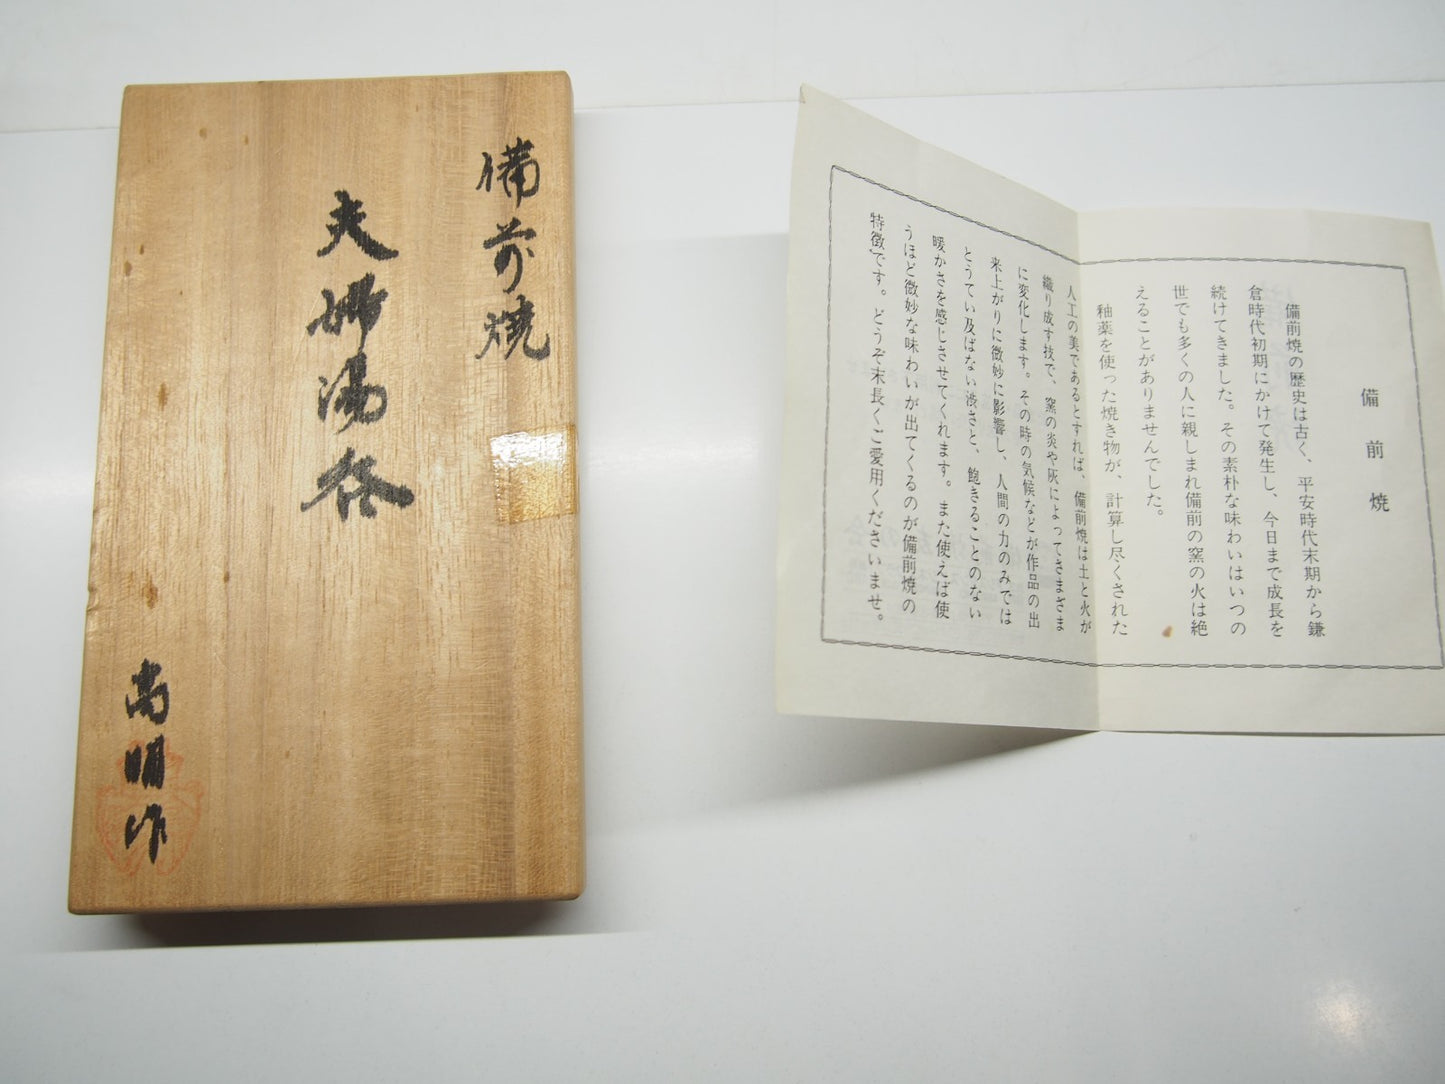 備前焼
夫婦湯呑
尚明作
備前焼
備前焼の歴史は古く、平安時代末期から鎌
倉時代初期にかけて発生し、今日まで成長を
続けてきました。その素朴な味わいはいつの
世でも多くの人に親しまれ備前の窯の火は絶
えることがありませんでした。
釉薬を使った焼き物が、計算し尽くされた
人工の美であるとすれば、備前焼は土と火が
織り成す技で、窯の炎や灰によってさまざま
に変化します。その時の気候などが作品の出
来上がりに微妙に影響し、人間の力のみでは
とうてい及ばない渋さと、飽きることのない
暖かさを感じさせてくれます。また使えば使
うほど微妙な味わいが出てくるのが備前焼の
特徴です。どうぞ末長くご愛用くださいませ。